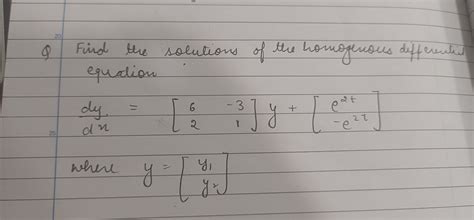 Q Find the solutions of the homogenous differential
equation
dy/dx = [6 -3; 2 1] y + [e^2t; -e^2t]
where y = [y1; y2]